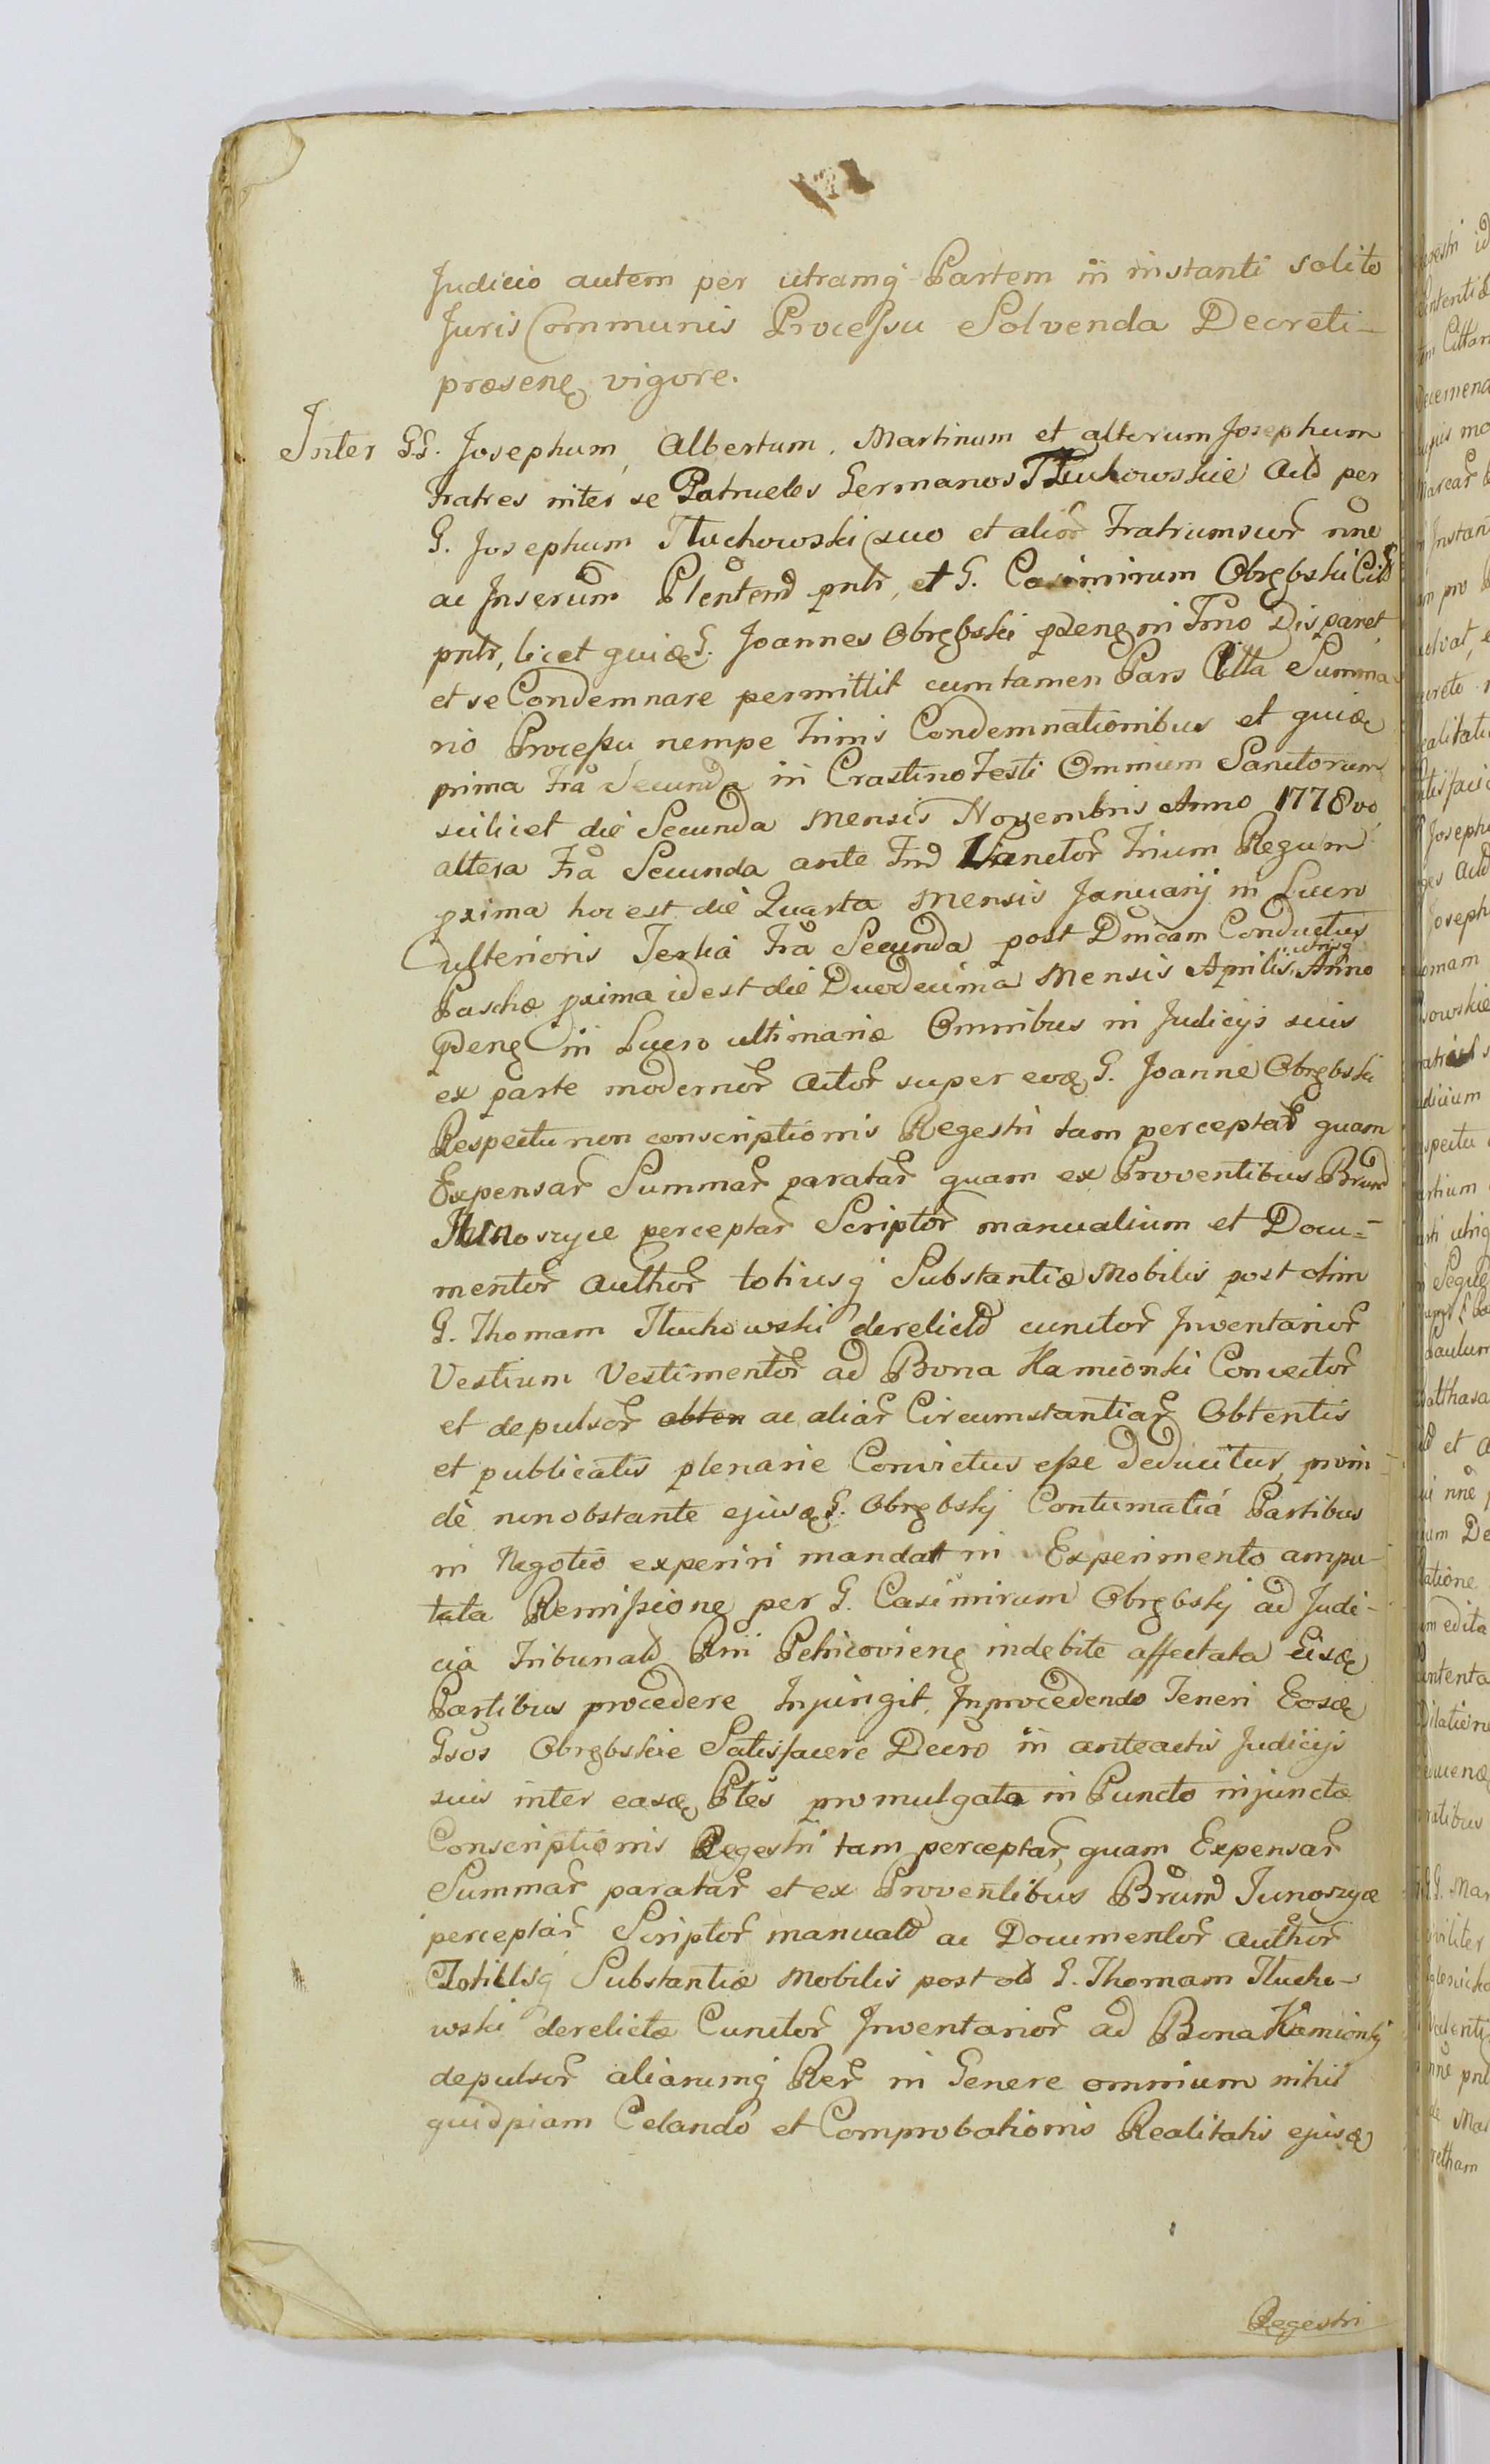 Judicio autem per utramq Partem in instanti solito
Juris Communis Processu Solvenda Decreti
præsenę vigore.
Inter GG. Josephum, Albertum, Martinum et alterum Josephum
Fratres inter se Patrueles Germanos Tłuchowskie Actð per
G. Josephum Tłuchowski suo et alior Fratrum suor nñe
ac Inserum Plentend pntr, et G. Casimirum Obrębski Cittð
pntr, licet quiæ G. Joannes Obrębski pdenę in Tmo Disparet
et se Condemnare permittit cum tamen Pars Citta Summa
rio Processu nempe Trinis Condemnationibus et quiæ
prima Fra Secunda in Crastino Festi Omnium Sanctorum
scilicet die Secunda Mensis Novembris Anno 1778vo
altera Fra Secunda ante Fm Sanctor Trium Regum
prima hoc est die Quarta Mensis Januarij in Lucro
ulterioris Tertia Fra Secunda post Dnicam Conductus
Paschæ prima id est die Duodecima Mensis Aprilis utrisq Anno
pdenę in Lucro ultimariæ Omnibus in Judicijs suis
ex parte modernor Actor super eoæ G. Joanne Obrębski
Respectu non conscriptionis Regestri tam perceptar quam
Expensar Summar paratar quam ex Proventibus Brum
Junoszyce perceptar Scriptor manualium et Docu=
mentor Author totiusq Substantiæ Mobilis post olim
G. Thomam Tłuchowski derelictð cunctor Inventarior
Vestium Vestimentor ad Bona Kamionki Convector
et depulsor obten ac aliar Circumstantiar Obtentis
et publicatis plenarie Convictus esse Deducitur, proin
de non obstante ejusæ G. Obrębskj Contumatiá Partibus
in Negotio experiri mandat in Experimento ampu-
tata Remissione per G. Casimirum Obrębskj ad Judi-
cia Tribunalð Rni Petricovienę indebite affectata Eisæ
Partibus procedere Injungit. In procedendo Teneri Eosæ
Gsos Obrębskie Satisfacere Decro in anteactis Judicijs
suis inter easæ Ptes promulgato in Puncto injunctæ
Conscriptionis Regestri tam perceptar, quam Expensar
Summar paratar et ex Proventibus Brum Junoszyce
perceptar Scriptor manualð ac Documentor Author
Totiusq Substantiæ Mobilis post olð G. Thomam Tłucho-
wski derelictæ Cunctor Inventarior ad Bona Kamionkj
depulsor aliarumq Rer in Genere omnium nihil
quidpiam Celando et Comprobationis Realitatis ejusæ
Regestri